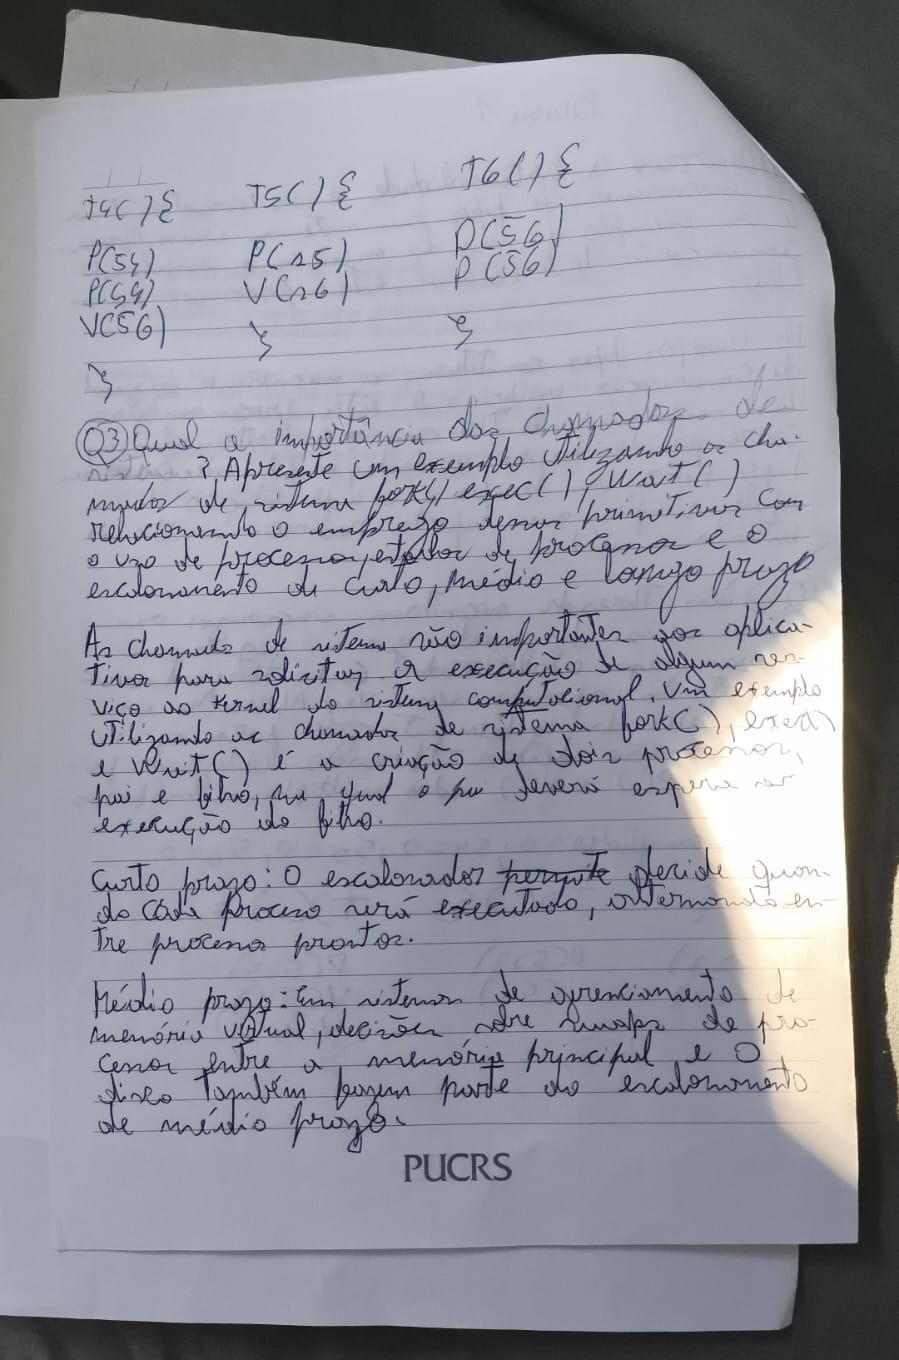 T4(){ T5(){ T6(){
P(S4) P(s5) P(S6)
P(S4) V(s6) P(S6)
V(S6) } }
}
Q3) Qual a importância das chamadas de
? Apresente um exemplo utilizando as cha-
madas de sistema fork() exec(), Wait()
relacionando o emprego dessas primitivas com
o uso de processos, estados de processos e o
escalonamento de Curto, médio e longo prazo
As chamadas de sistema são importantes aos aplica-
tivos para solicitar a execução de algum ser-
viço ao Kernel do sistema computacional. Um exemplo
utilizando as chamadas de sistema fork(), exec()
e Wait() é a criação de dois processos,
pai e filho, no qual o pai deverá esperar a
execução do filho.
Curto prazo: O escalonador permite decide quan-
do cada processo será executado, alternando en-
tre processos prontos.
Médio prazo: Em sistemas de gerenciamento de
memória virtual, decisões sobre swaps de pro-
cessos entre a memória principal e o
disco também fazem parte do escalonamento
de médio prazo.
PUCRS